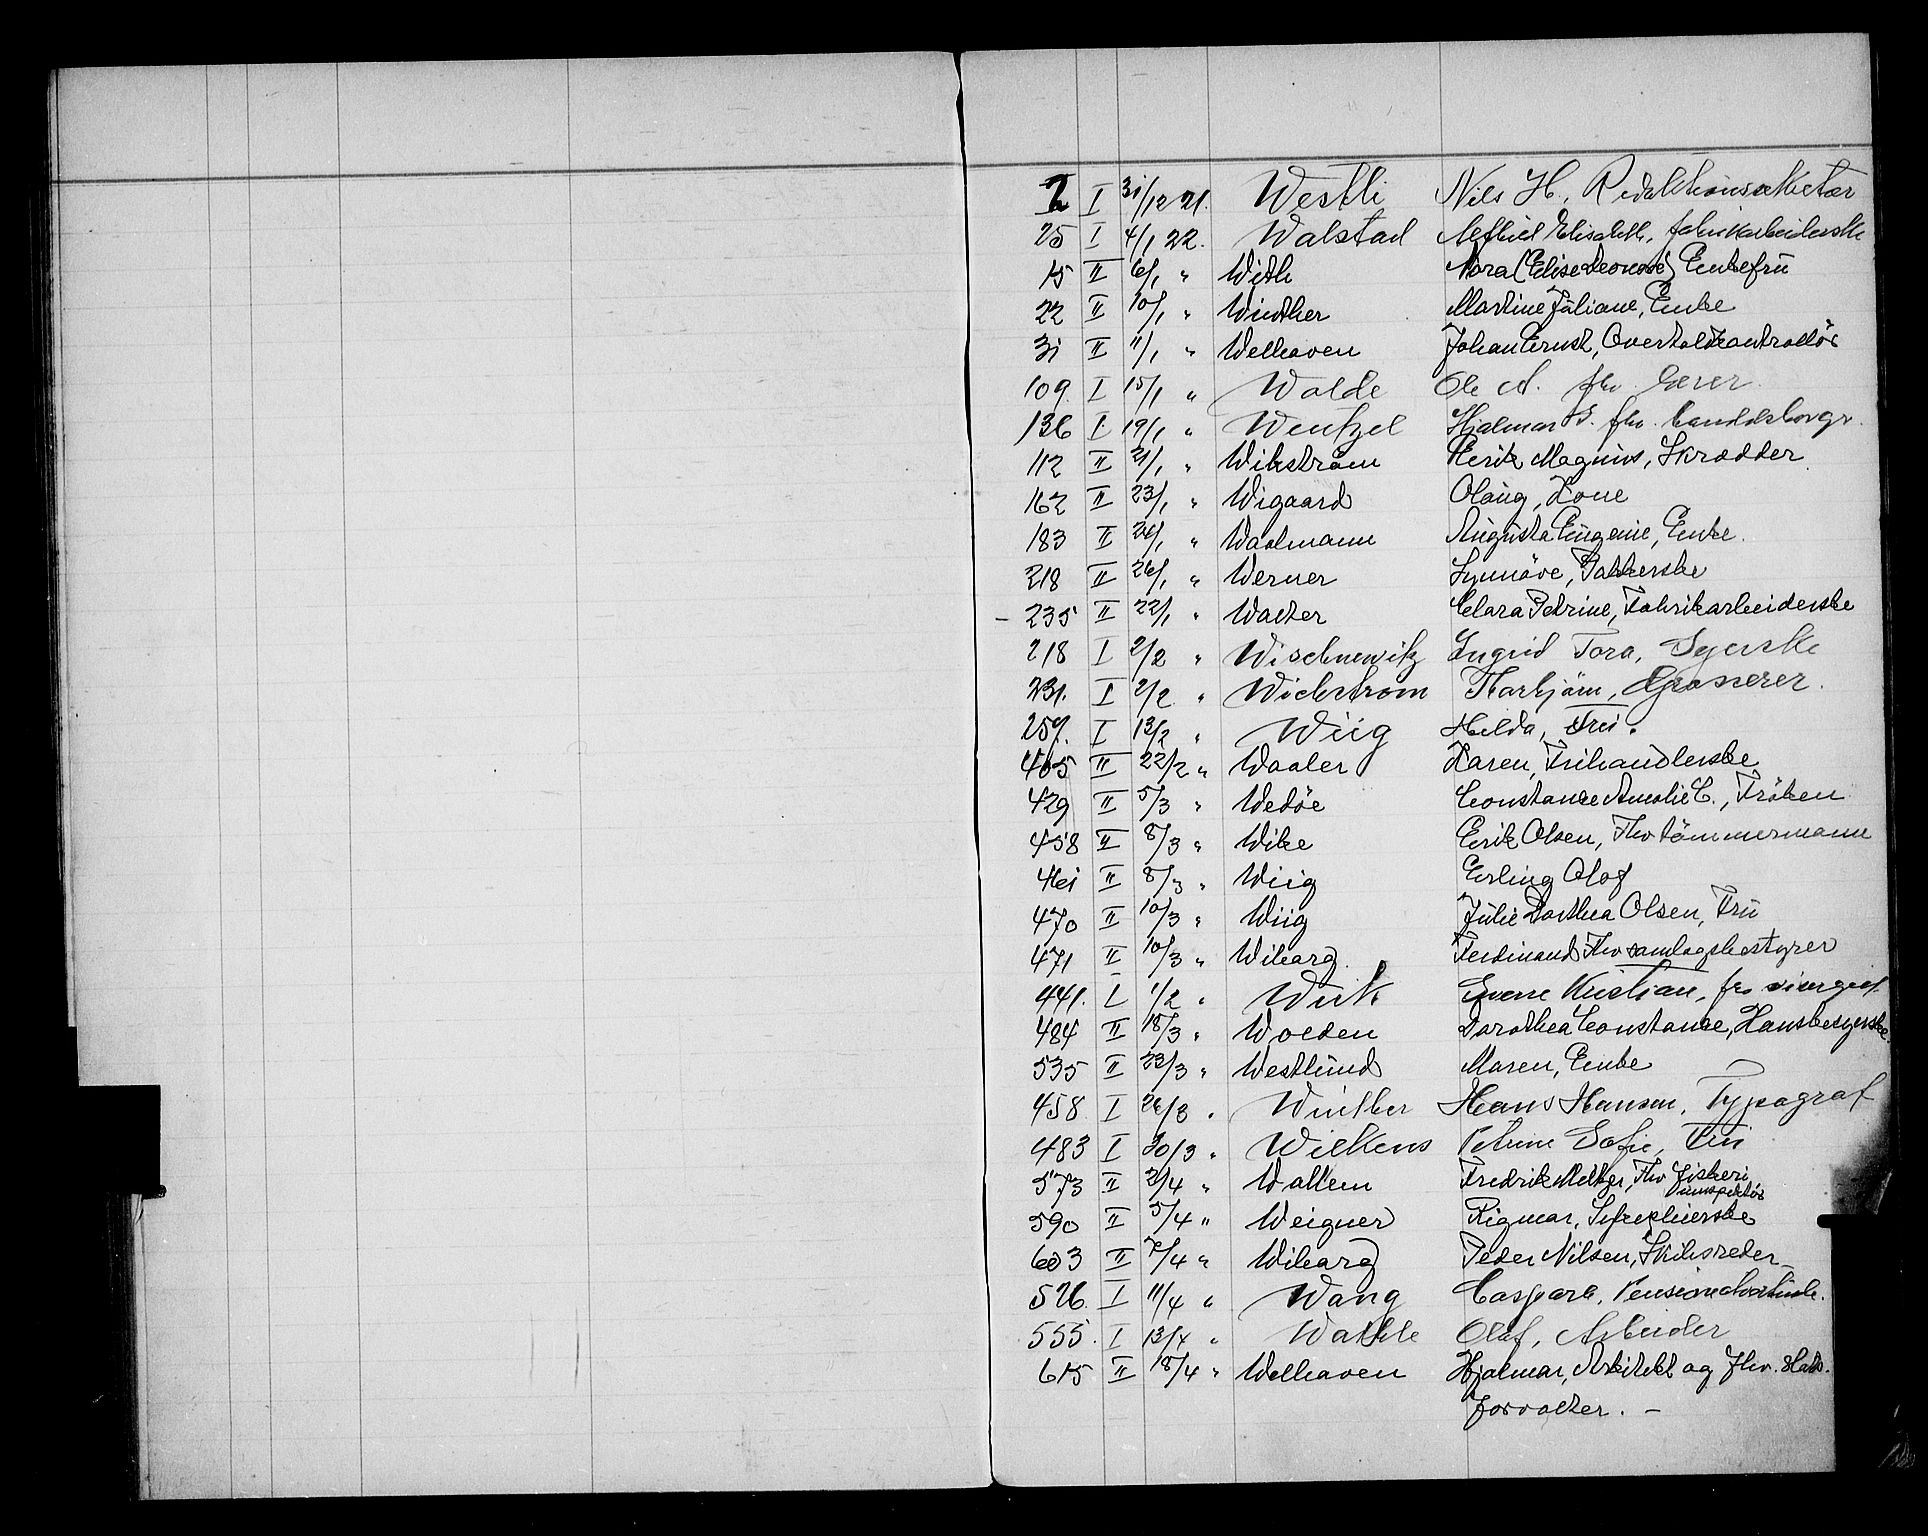 2 I 31/12 21. Westli Nils H, Redaktionssekretær
25 I 4/1 22. Walstad Elisabeth, fabrikarbeiderske
15 II 6/1 " With Nora (Elise Leonore) Enkefru
22 II 10/1 " Winther Martine Juliane, Enke
31 II 11/1 " Welhaven Johan Ernst, Overtoldkontrollør
109. I 15/1 " Wolde Ole A. fhv. lærer.
136 I 19/1 " Wentzel Hjalmar S. fhv.
112 II 21/1 " Wikstrøm Henrik Magnus, Skrædder
162 II 23/1 " Wigaard Olaug, Kone
183 II 24/1 " Waalmann Augusta Eugenie, Enke.
218 II 26/1 " Werner Synnöve, Pakkerske
- 235 II 22/1 " Walter Clara Petrine, Fabrikarbeiderske
218 I 2/2 " Wischnewitz Ingrid Tora, Syerske
231. I 2/2 " Wickstrøm Thorbjörn, Grosserer.
259. I 13/2 " Wiig Hilda, Fru.
405 II 22/2 " Waaler Karen, Frihandlerske
429 II 5/3 " Wedöe Constance Amalie C., Fröken
458 II 8/3 " Wike Erik Olsen, Fhv tömmermann
461 II 8/3 " Wiig Erling Olaf
470 II 10/3 " Wiig Julie Dorthea Olsen, Fru
471 II 10/3 " Wiborg. Ferdinand Fhv samlagsbestyrer
441. I 1/2 " Wirk Sverre Kristian, fhv
484 II 18/3 " Wolden Dorothea Constance, Husbestyrerske
535 II 23/3 " Westlund Maren, Enke
458 I 26/3 " Winther Hans Hansen, Typograf
483 I 30/3 " Wilkens Petrine Sofie, Fru
573 II 2/4 " Wallem Fredrik Meltzer, Fhv Fiskeri
inspektör
590 II 5/4 " Weigner Rigmor,
603 II 7/4 " Wiborg Peder Nilsen, Skibsreder
526. I 11/4 " Wang Caspara, Pensionatværtinde.
555. I 13/4 " Wathle Olaf, Arbeider
615 II 18/4 " Welhaven Hjalmar, Arkitekt og Fhv. slots-
forvalter. -